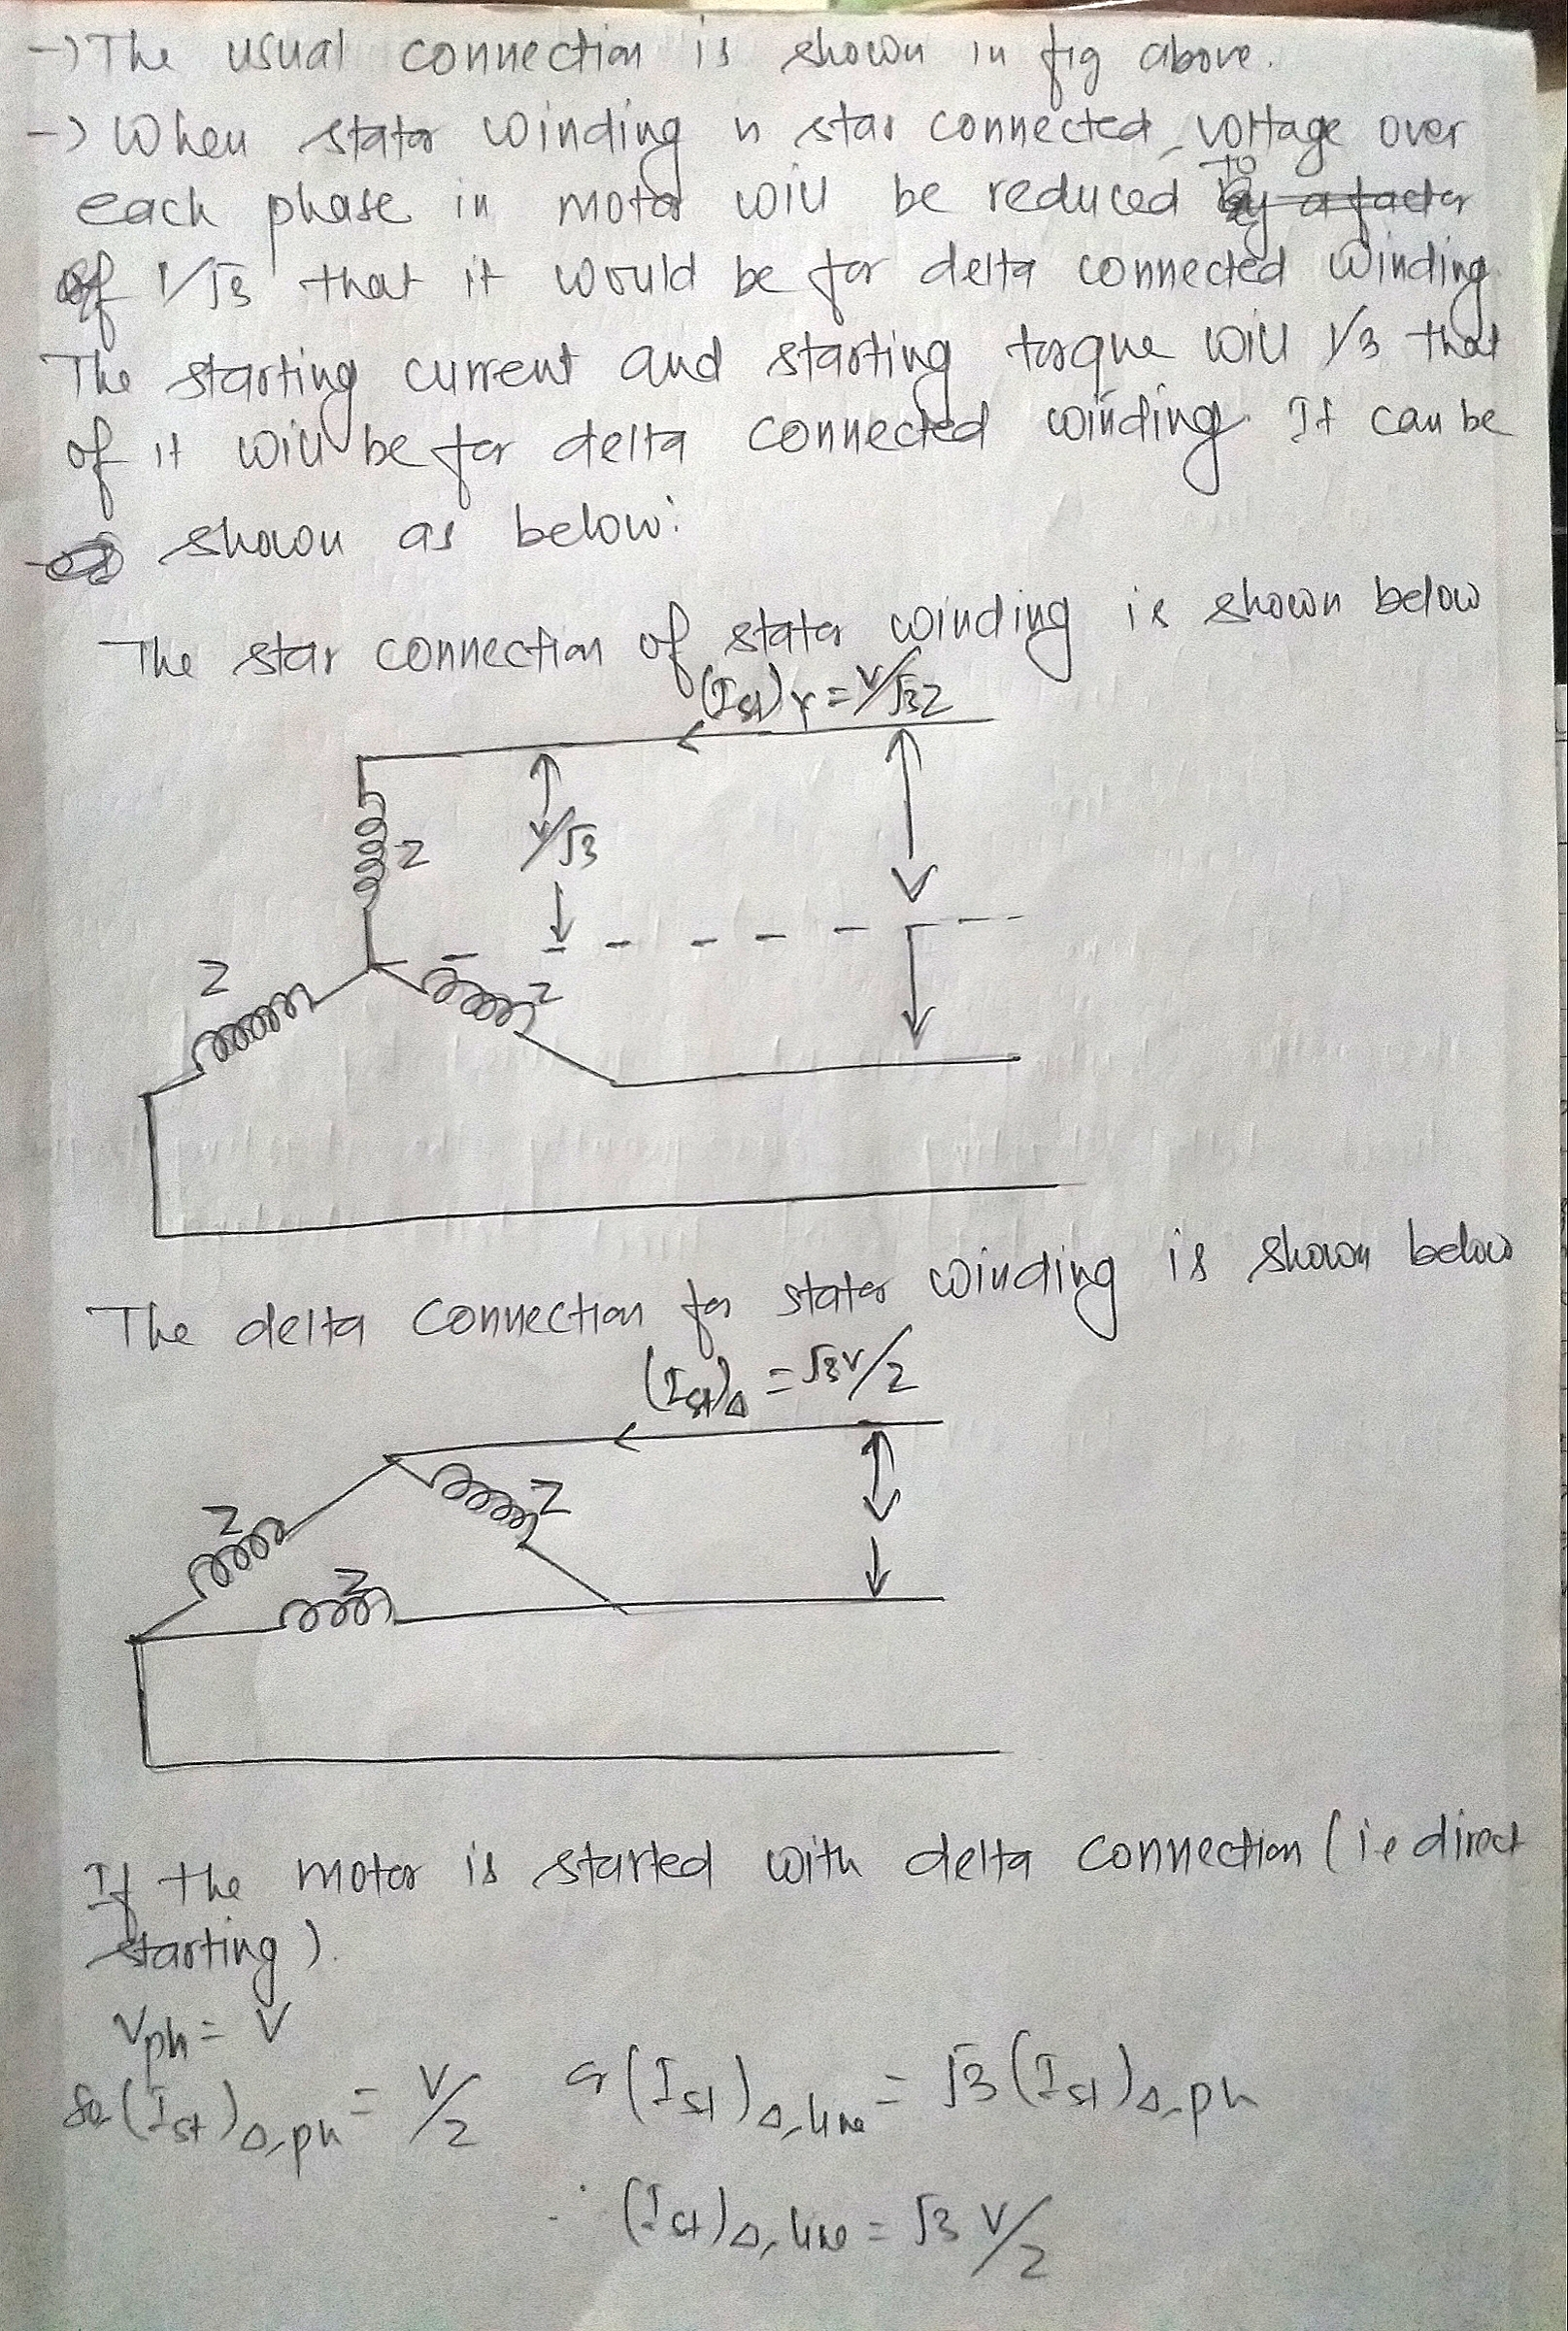 -> The usual connection is shown in fig above.
-> When stator winding is star connected, voltage over
each phase in motor will be reduced to by a factor
of 1/√3 that it would be for delta connected winding.
The starting current and starting torque will 1/3 that
of it will be for delta connected winding. It can be
shown as below:
The star connection of stator winding is shown below
(Ist)Y = V/√3Z
Z
V/√3
V
Z
Z
The delta connection for stator winding is shown below
(Ist)Δ = √3V/Z
Z
Z
V
Z
If the motor is started with delta connection (i.e direct
starting).
Vph = V
So (Ist)Δ,ph = V/Z & (Ist)Δ,line = √3 (Ist)Δ,ph
∴ (Ist)Δ,line = √3 V/Z